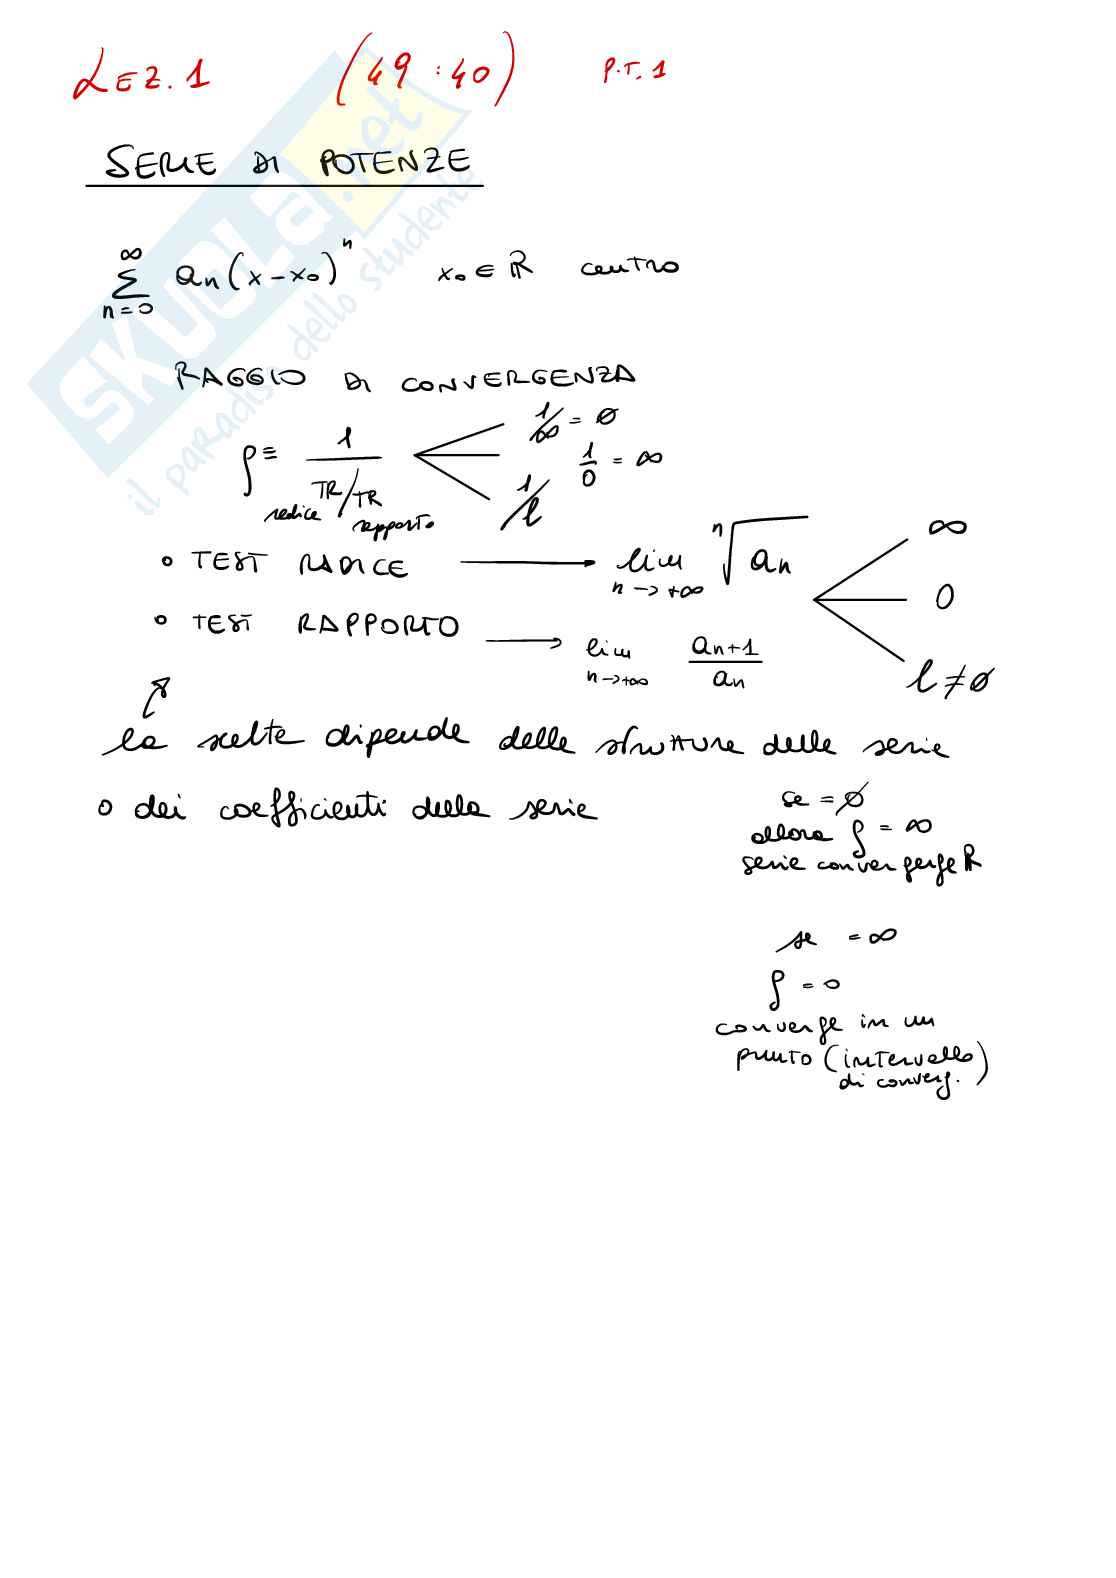 LEZ. 1 (49:40) P.T. 1
SERIE DI POTENZE
∞
∑ an(x-x₀)ⁿ x₀ ∈ ℝ centro
n=0
RAGGIO DI CONVERGENZA
ρ ≡ 1 / TR/TR
radice rapporto
1/∞ = ∅
1/0 = ∞
1/l
• TEST RADICE → lim ⁿ√an
n→+∞
• TEST RAPPORTO → lim an+1/an
n→+∞
∞
0
l ≠ ∅
la scelta dipende dalla struttura della serie
o dei coefficienti della serie
se = ∅
allora ρ = ∞
serie converge ℝ
se = ∞
ρ = 0
converge in un
punto (intervallo
di converg.)
SKUOLA.net
il paradiso dello studente